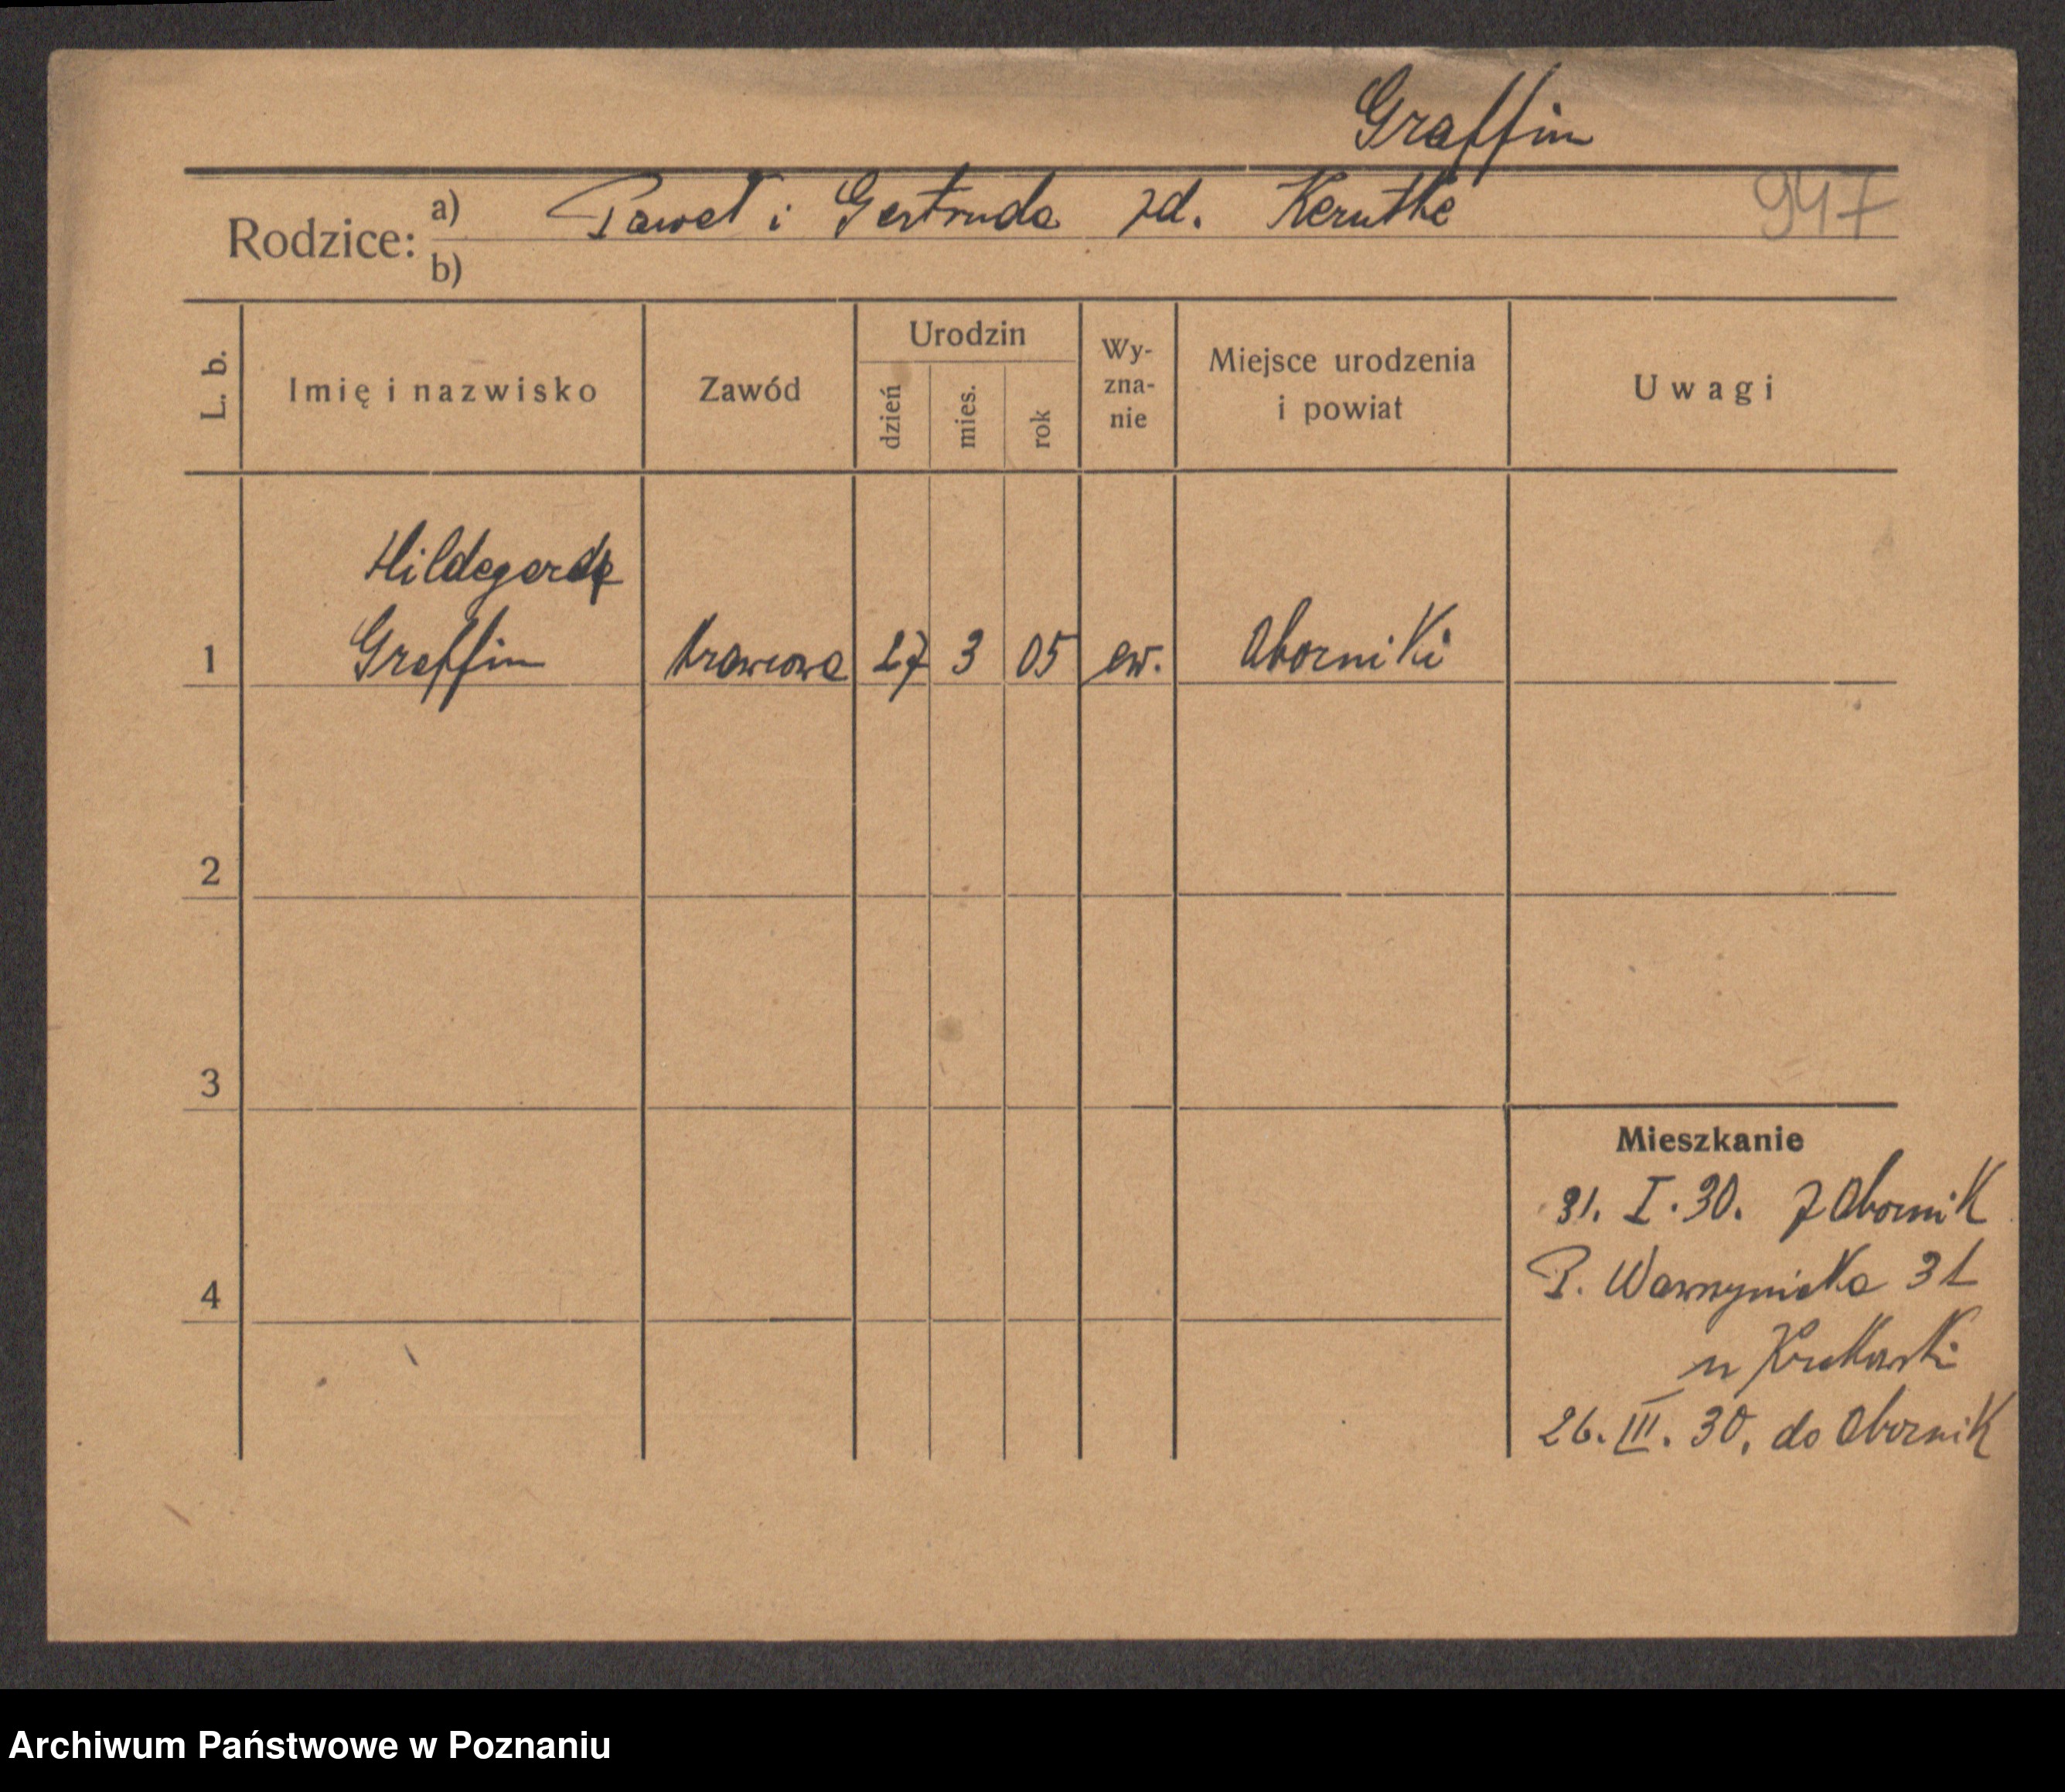 Graffin
Rodzice: a) Paweł i Gertruda zd. Kerutke 947
b)
L. b. Imię i nazwisko Zawód Urodzin dzień mies. rok Wy-zna-nie Miejsce urodzenia i powiat Uwagi
Hildegarda
1 Graffin krawcowa 27 3 05 ew. Oborniki
2
3
Mieszkanie
31. I. 30. z Obornik
4 P. 31
u
26. III. 30. do Obornik
Archiwum Państwowe w Poznaniu